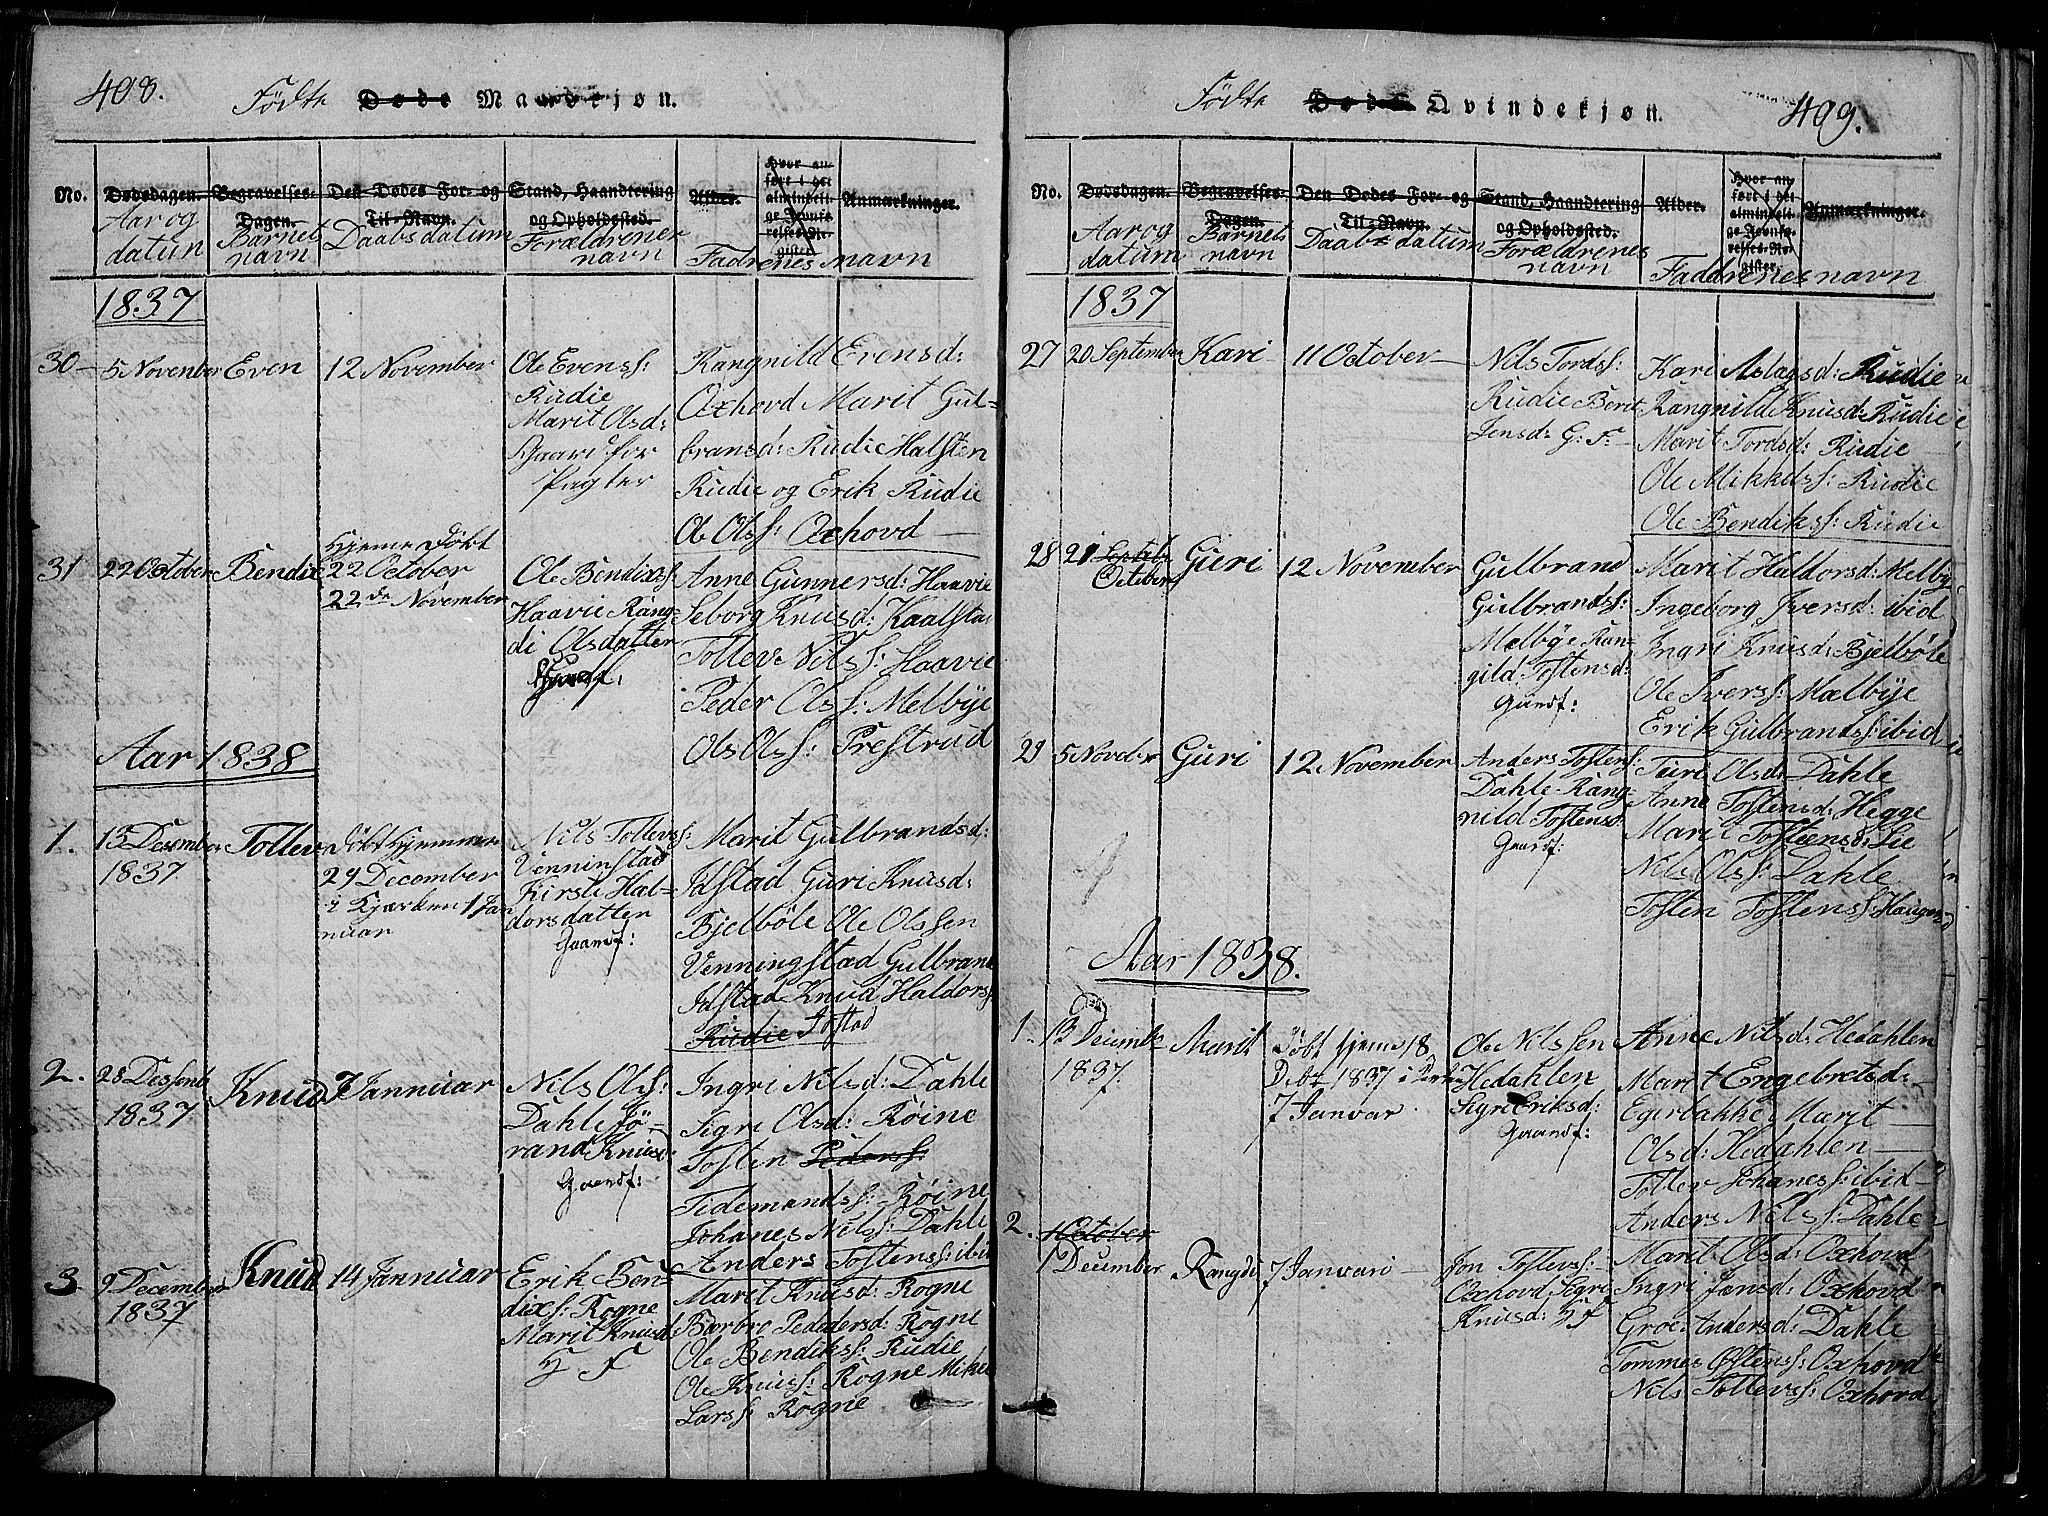 408.
Födte Døde Mandkjøn.
No.
Dødsdagen.
Aar og
datum
Begravelses-
Dagen.
Barnets
navn
Den Dødes For- og
Til-Navn.
Daabsdatum
Stand, Haandtering
og Opholdssted.
Forældrenes
navn
Alder.
Hvor an-
ført i det
almindeli-
ge Jevnfø-
relses-Re-
gister.
Anmærkninger.
Fadrenes navn
1837
30
5 November
Even
12 November
Ole Evens:
Rudie
Marit Olsd:
Gaard for
Pagter
Rangnild Evensd:
Oxhovd Marit Gul-
bransd: Rudie Halsten
Rudie og Erik Rudie
Ole Olss: Oxhovd
31
22 October
Bendix
Hjemme Döbt
22 October
22de November
Ole Bendixs:
Haavie Rang-
di Olsdatter
Anne Gunnersd: Haavie
Seborg Knusd: Kaalsta
Tollev Nilss: Haavie
Peder Olss: Melbÿe
Ols Olss: Prestrud
Aar 1838
1.
13 Desember
1837
Tollev
Döbt Hjemme
29 December
i Kjærken 1 Jan
nuar
Nils Tollevs:
Venninstad
Kirsti Hal-
dorsdatter
Gaardf:
Marit Gulbrandsd:
Idstad Guri Knusd:
Bjelböle Ole Olssen
Venningstad Gulbrand
Idstad Knud Haldors:
Rudie Istad
2.
28 Dessemb
1837
Knud
7 Jannuar
Nils Ols:
Dahle Jö-
rand Knusd:
Gaardf:
Ingri Nilsd: Dahle
Sigri Olsd: Röine
Tosten Peders:
Tidemands: Röine
Johanes Nils: Dahle
Anders Tostens: ibid
3.
9 December
1837
Knud
14 Jannuar
Erik Ben-
dixs: Rogne
Marit Knusd:
G F
Marit Knusd: Rogne
Barbro Pedersd: Rogne
Ole Bendiks: Rudie
Ole Knus: Rogne Mikel
Lars: Rogne
409.
Födte Døde Qvindekjøn.
No.
Dødsdagen.
Aar og
datum
Begravelses-
Dagen.
Barnets
navn
Den Dødes For- og
Til-Navn.
Daabs datum
Stand, Haandtering
og Opholdssted.
Forældrenes
navn
Alder.
Hvor an-
ført i det
almindeli-
ge Jevnfø-
relses-Re-
gister.
Anmærkninger.
Faddrenes navn
1837
27
20 September
Kari
11 October
Nils Tords:
Rudie Berit
Jensd: G: F:
Kari Aslagsd: Rudie
Rangnild Knusd: Rudie
Marit Tordsd: Rudie
Ole Mikkels: Rudie
Ole Bendiks: Rudie
28
21 Septeb
October
Guri
12 November
Gulbrand
Gulbrands:
Mælbÿe Ran-
gild Tostensd:
Gaardf:
Marit Haldorsd: Melbÿ
Ingeborg Iversd: ibid
Ingri Knusd: Bjelböle
Ole Ivers: Mælbÿe
Erik Gulbrands: ibid
29
5 Novder
Guri
12 November
Anders Tostens:
Dahle Rang-
nild Tostensd:
Gaardf:
Turi Olsd: Dahle
Anne Tostensd: Hegge
Marit Tostensd: Lie
Nils Ols: Dahle
Tosten Tostens: Haugen
Aar 1838.
1.
13 Decembr
1837.
Marit
Döbt hjeme 18
Debr 1837 i Kirken
7 Januar
Ole Nilssen
Hedahlen
Sigri Eriksd:
Gaardf:
Anne Nilsd: Hedahlen
Marit Engebretsd:
Egerbakke Marit
Olsd: Hedahlen
Tollev Johaness: ibid
Anders Nils: Dahle
2.
October
1 December
Rangdi
7 Januari
Jon Tollevs:
Oxhovd Segri
Knusd: G F
Marit Olsd: Oxhovd
Ingri Jonsd: Oxhovd
Groe Andersd: Dahle
Tommes Ostens: Oxhovd
Nils Tollevs: Oxhovd